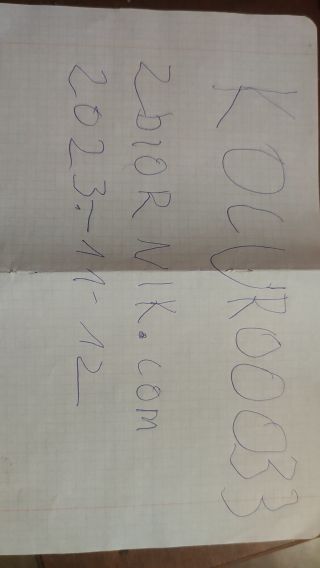 KOCUR00033
ZbIORNIK.com
2023.-11-12